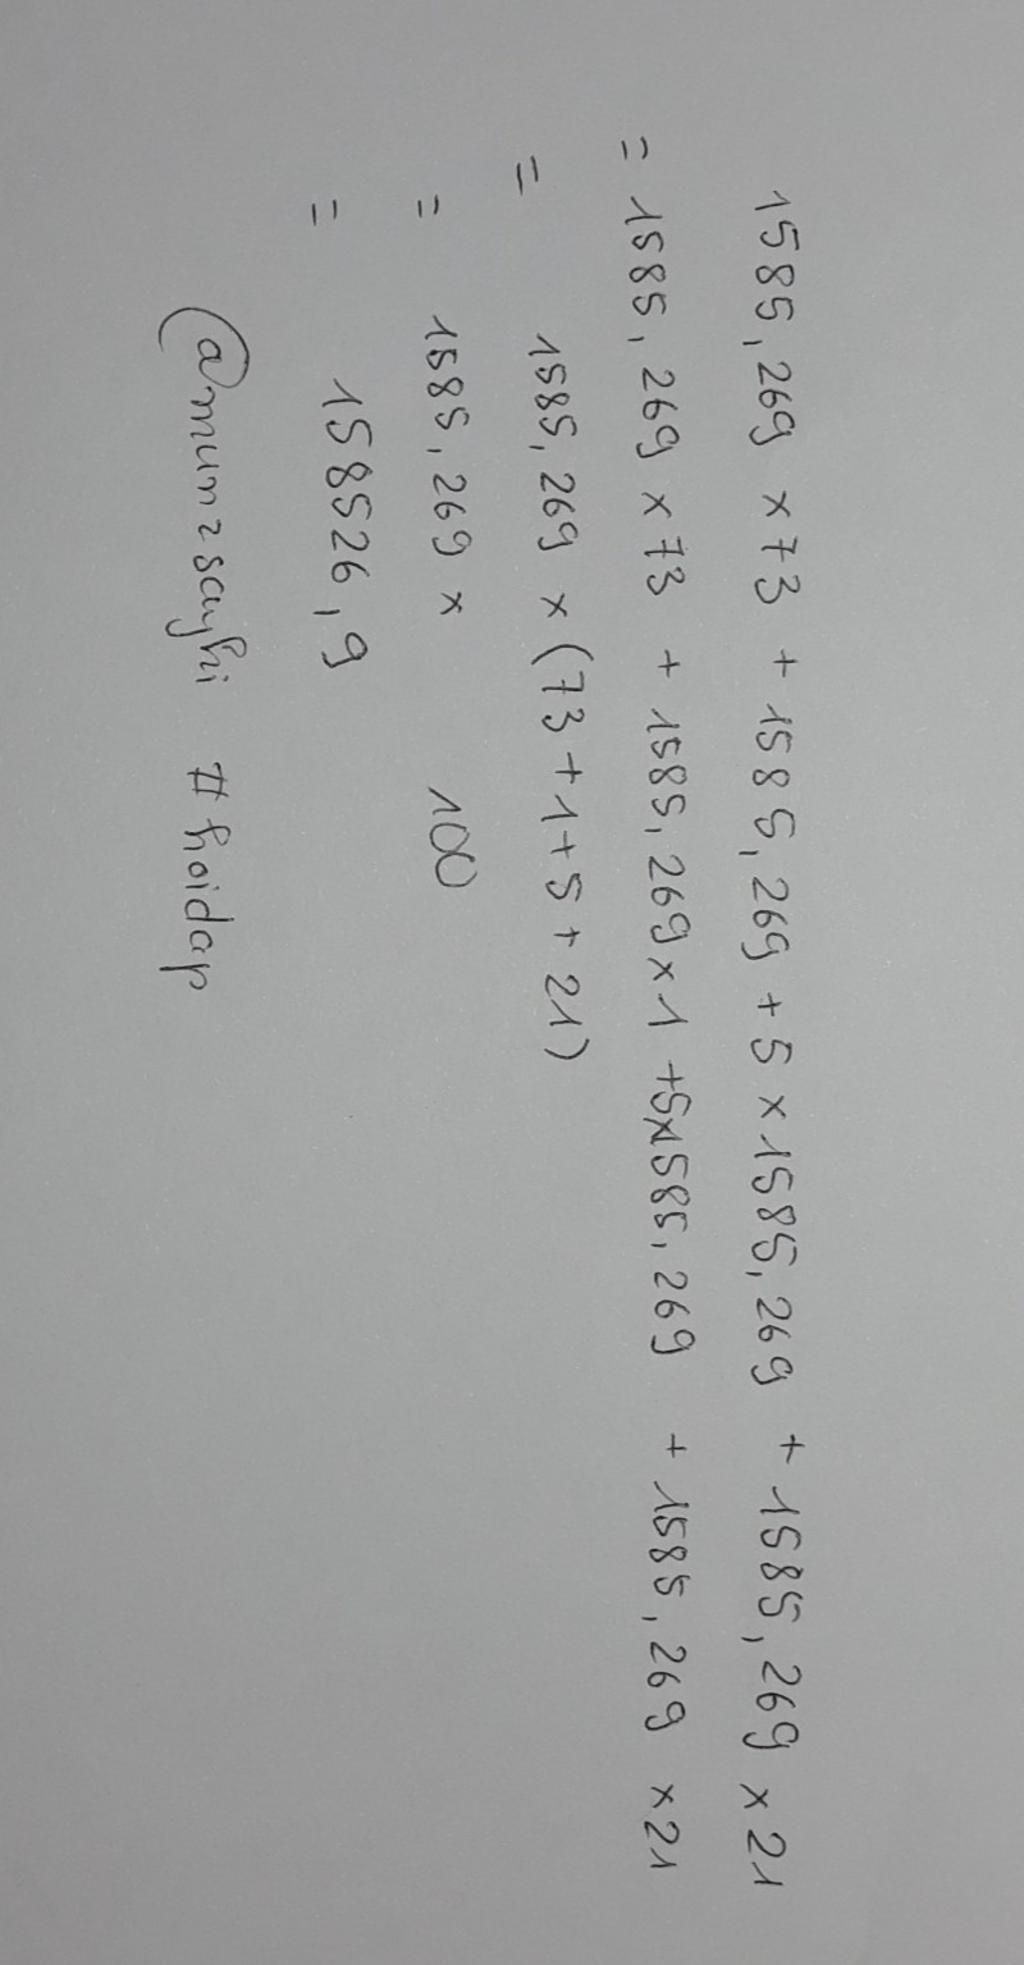 1585,269 x 73 + 1585,269 + 5 x 1585,269 + 1585,269 x 21
= 1585,269 x 73 + 1585,269 x 1 + 5x1585,269 + 1585,269 x 21
= 1585,269 x (73 + 1 + 5 + 21)
= 1585,269 x 100
= 158526,9
@mum2sayhi #hoidap